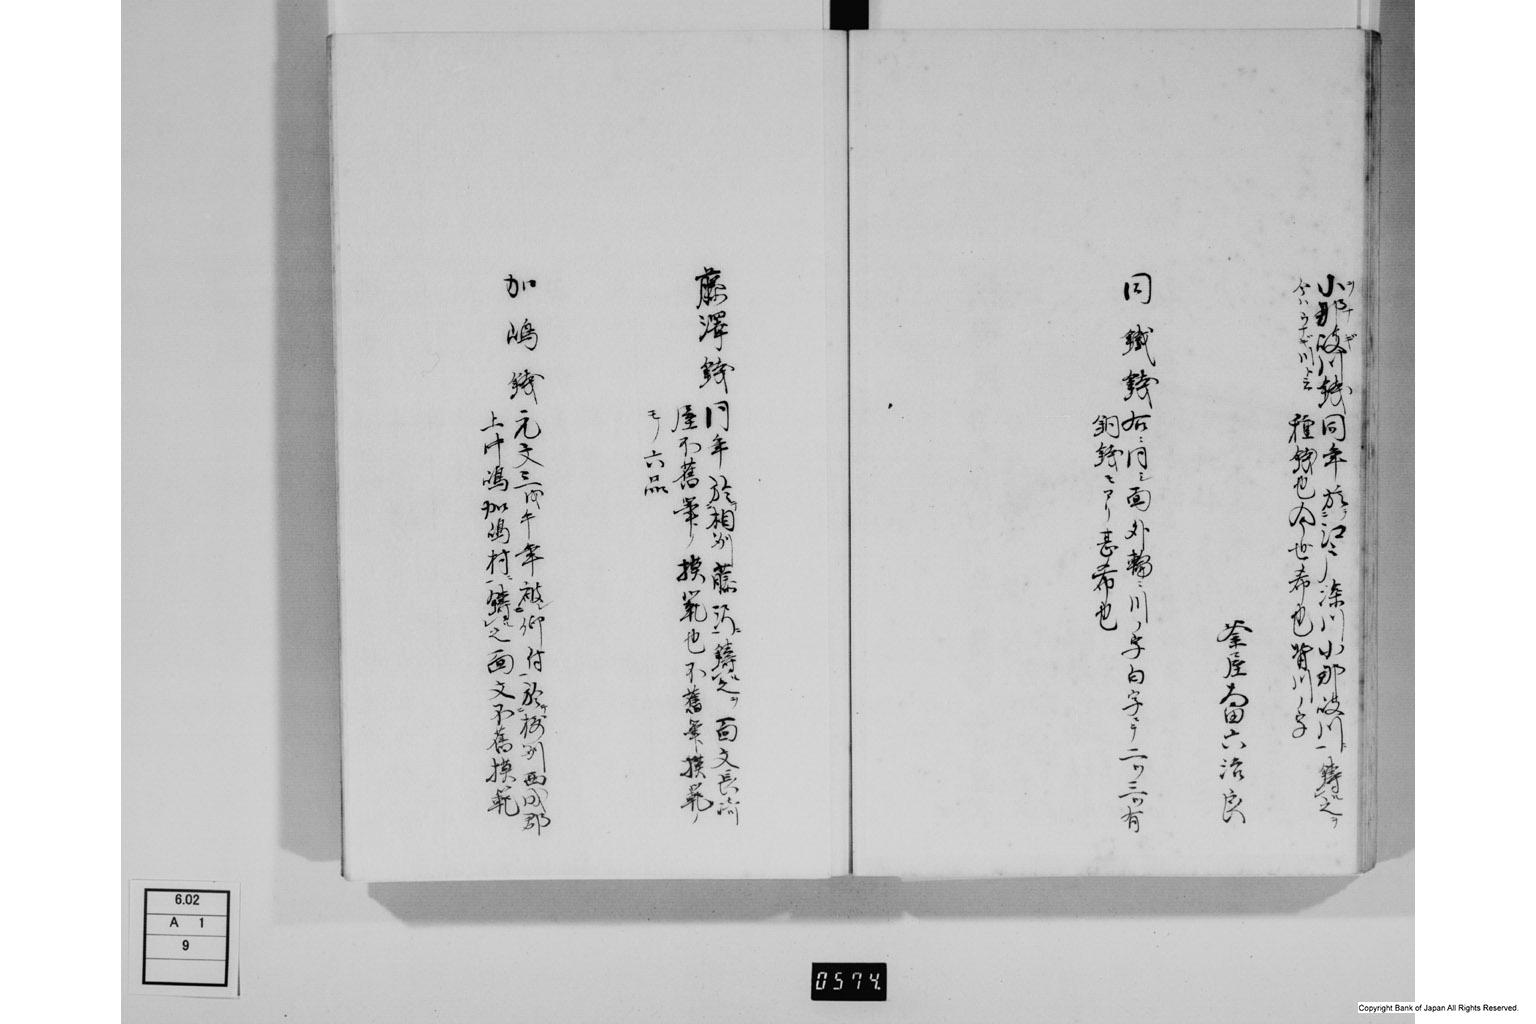 小那岐川銭同年於江戸深川小那岐川ニ鋳之
ツ ナ ギ
今ハヲナギ川ト云
種銭也今世希也背川ノ字
釜屋 田六治良
同鐵銭右ニ同シ面外輪ニ川ノ字白字ヲ二ツ三ツ有
銅銭モアリ甚希也
藤澤銭同年於相州藤沢鋳之面文長
屋不舊年ノ摸範也不舊年摸範ノ
モノ六品
加嶋銭元文三戊午年被仰付於摂州西成郡
上中嶋加嶋村鋳之面文不舊摸範
6.02
A 1
9
0574
Copyright Bank of Japan All Rights Reserved.